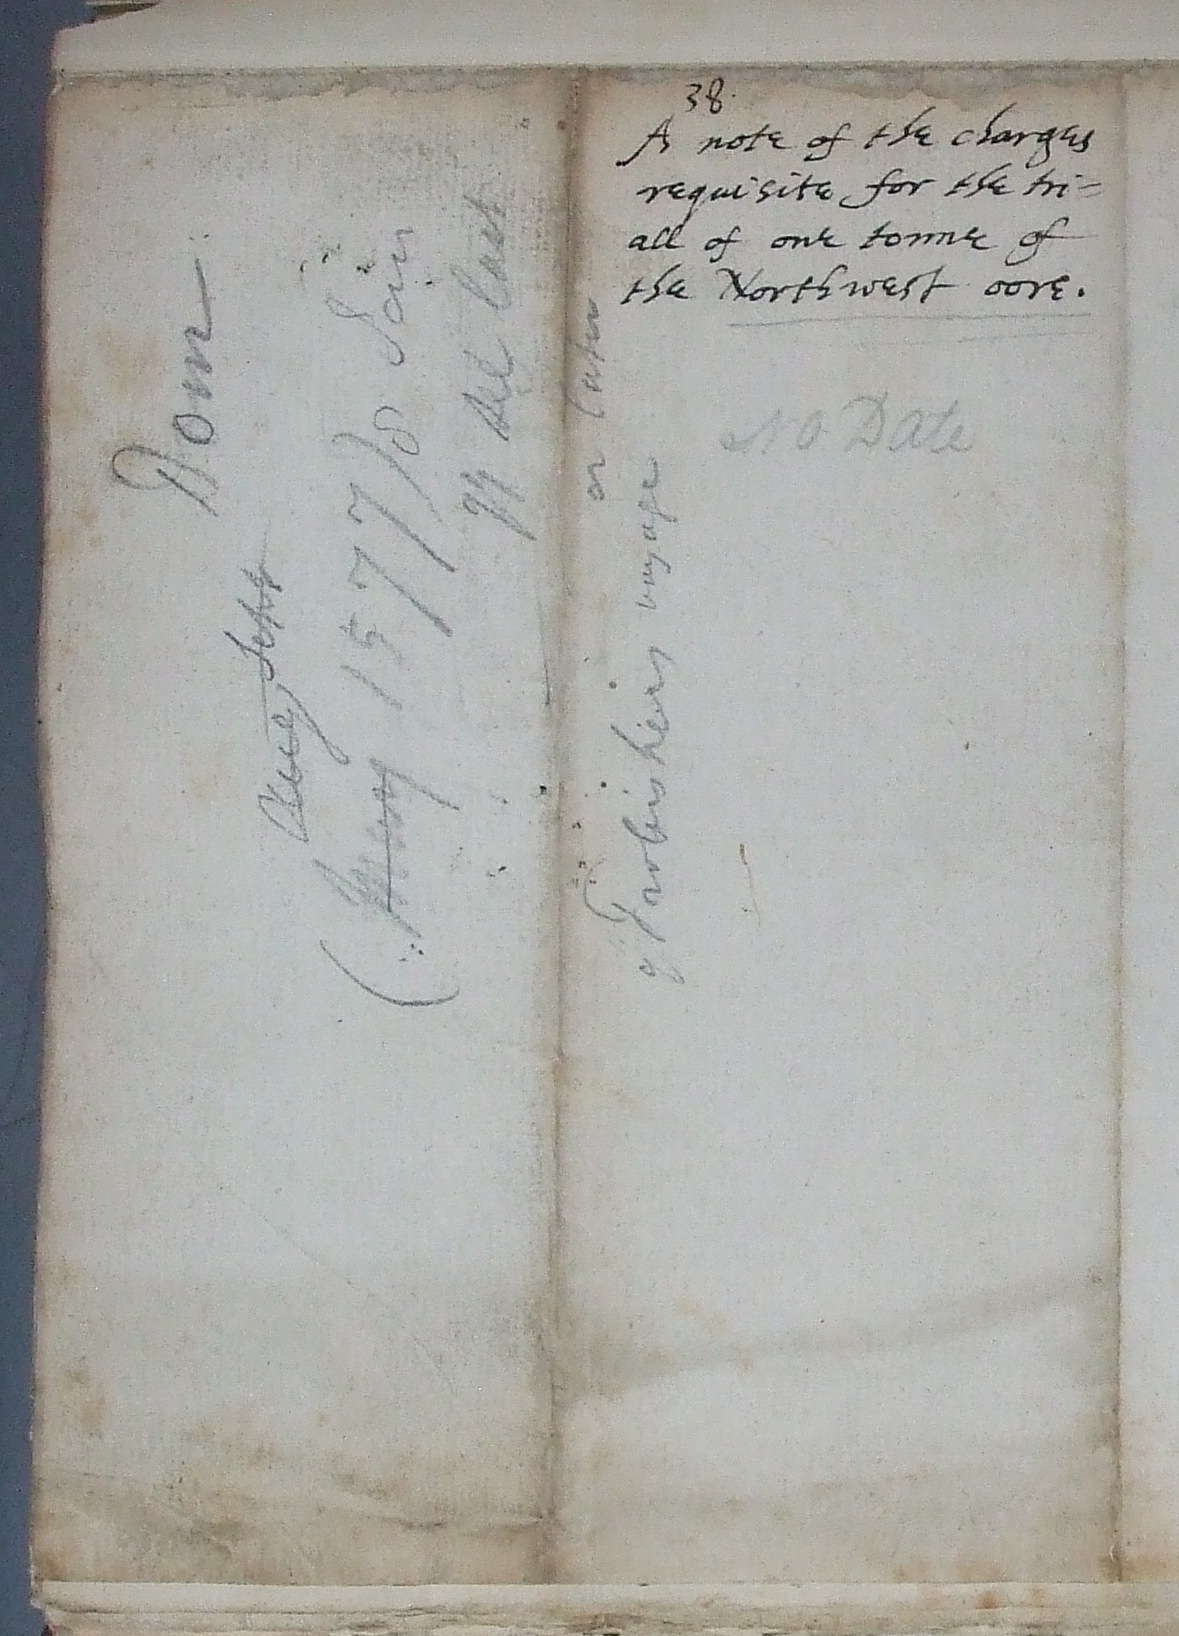 38.
A note of the charges
requisite for the tri=
all of one tonne of
the Northwest oore.
No Date
Dom
Aug Sept
1577
or later
Forbishers voyage